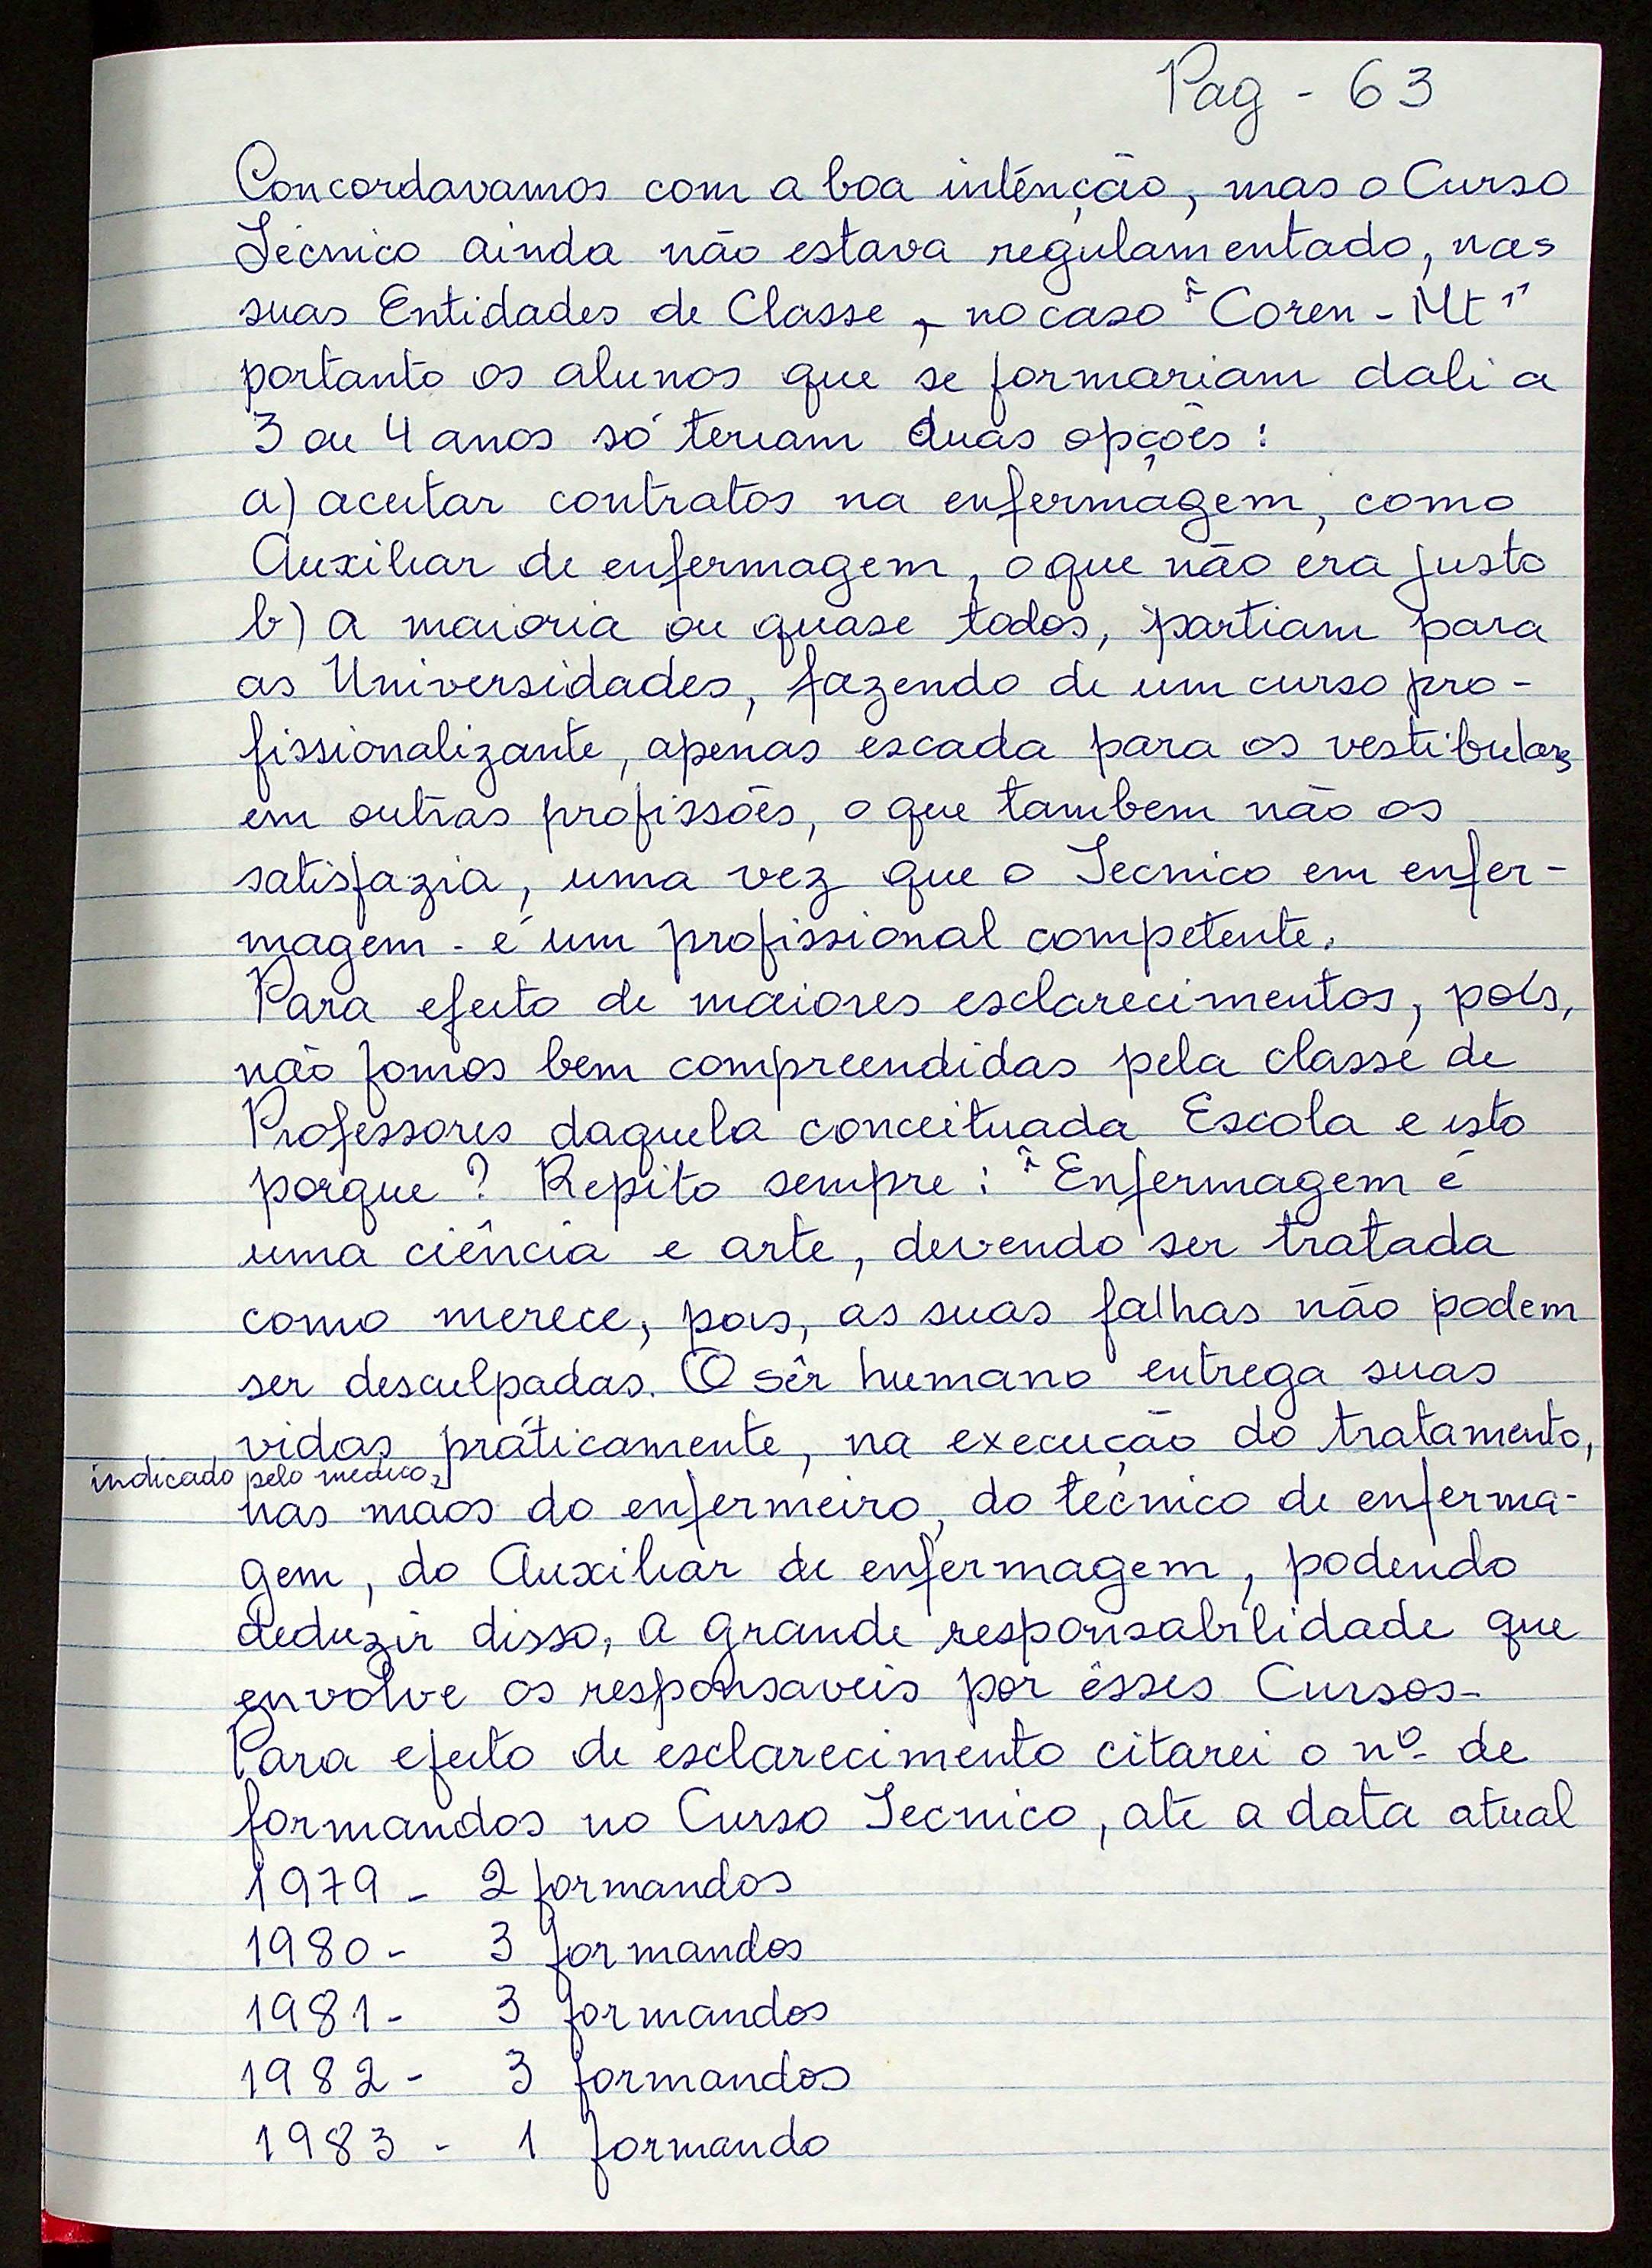 Pag - 63
Concordavamos com a boa intenção, mas o Curso
Técnico ainda não estava regulamentado, nas
suas Entidades de Classe, no caso "Coren - Mt"
portanto os alunos que se formariam dali a
3 ou 4 anos só teriam duas opções:
a) aceitar contratos na enfermagem, como
Auxiliar de enfermagem, o que não era justo
b) a maioria ou quase todos, partiam para
as Universidades, fazendo de um curso pro-
fissionalizante, apenas escada para os vestibulares
em outras profissões, o que tambem não os
satisfazia, uma vez que o Tecnico em enfer-
magem - é um profissional competente.
Para efeito de maiores esclarecimentos, pois,
não fomos bem compreendidas pela classe de
Professores daquela conceituada Escola e isto
porque? Repito sempre: "Enfermagem é
uma ciência e arte, devendo ser tratada
como merece, pois, as suas falhas não podem
ser desculpadas. O sêr humano entrega suas
vidas práticamente, na execução do tratamento,
indicado pelo medico,
nas mãos do enfermeiro, do técnico de enferma-
gem, do Auxiliar de enfermagem, podendo
deduzir disso, a grande responsabilidade que
envolve os responsaveis por êsses Cursos-
Para efeito de esclarecimento citarei o nº de
formandos no Curso Tecnico, até a data atual
1979 - 2 formandos
1980 - 3 formandos
1981 - 3 formandos
1982 - 3 formandos
1983 - 1 formando